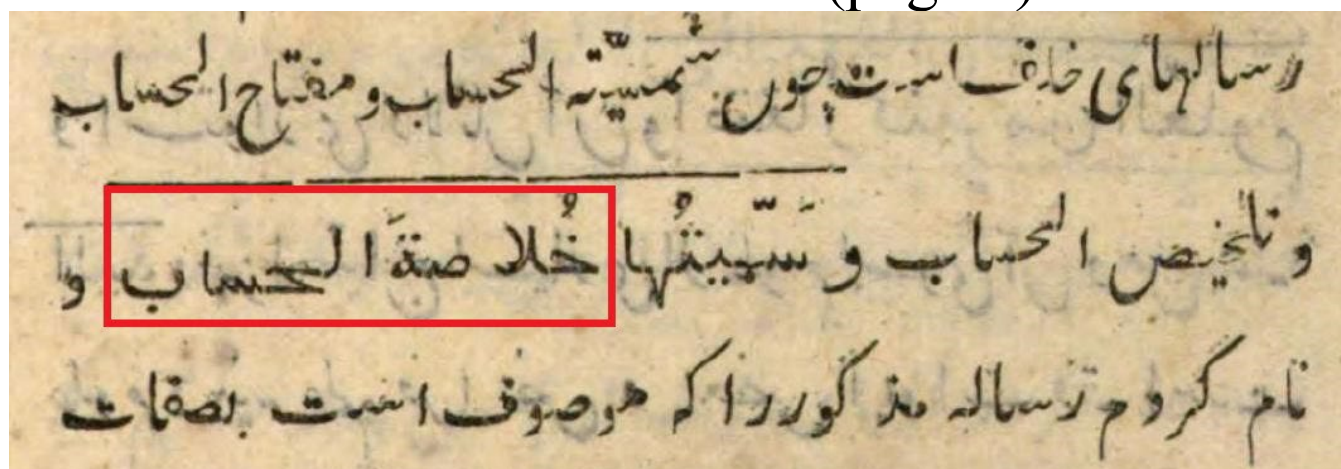 رسالهای خلف است چون شمسیّته الحساب و مفتاح الحساب
و تلخیص الحساب و سَمَّیتُها خُلاصةَ الحساب و
نام کردم رساله مذکور را که موصوف است بصفات